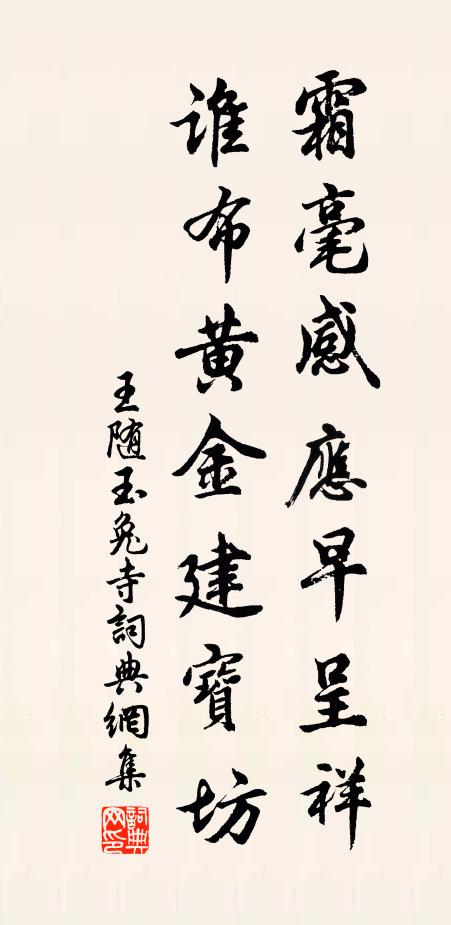 霜毫感應早呈祥
誰布黄金建寶坊
王随玉兔寺詞典網集
詞典网印